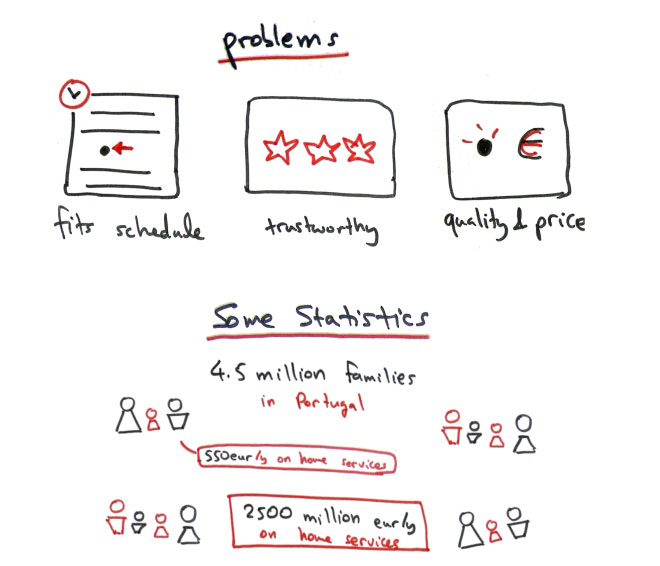 problems
fits schedule
trustworthy
€
quality & price
Some Statistics
4.5 million families
in Portugal
550eur/y on home services
2500 million eur/y
on home services